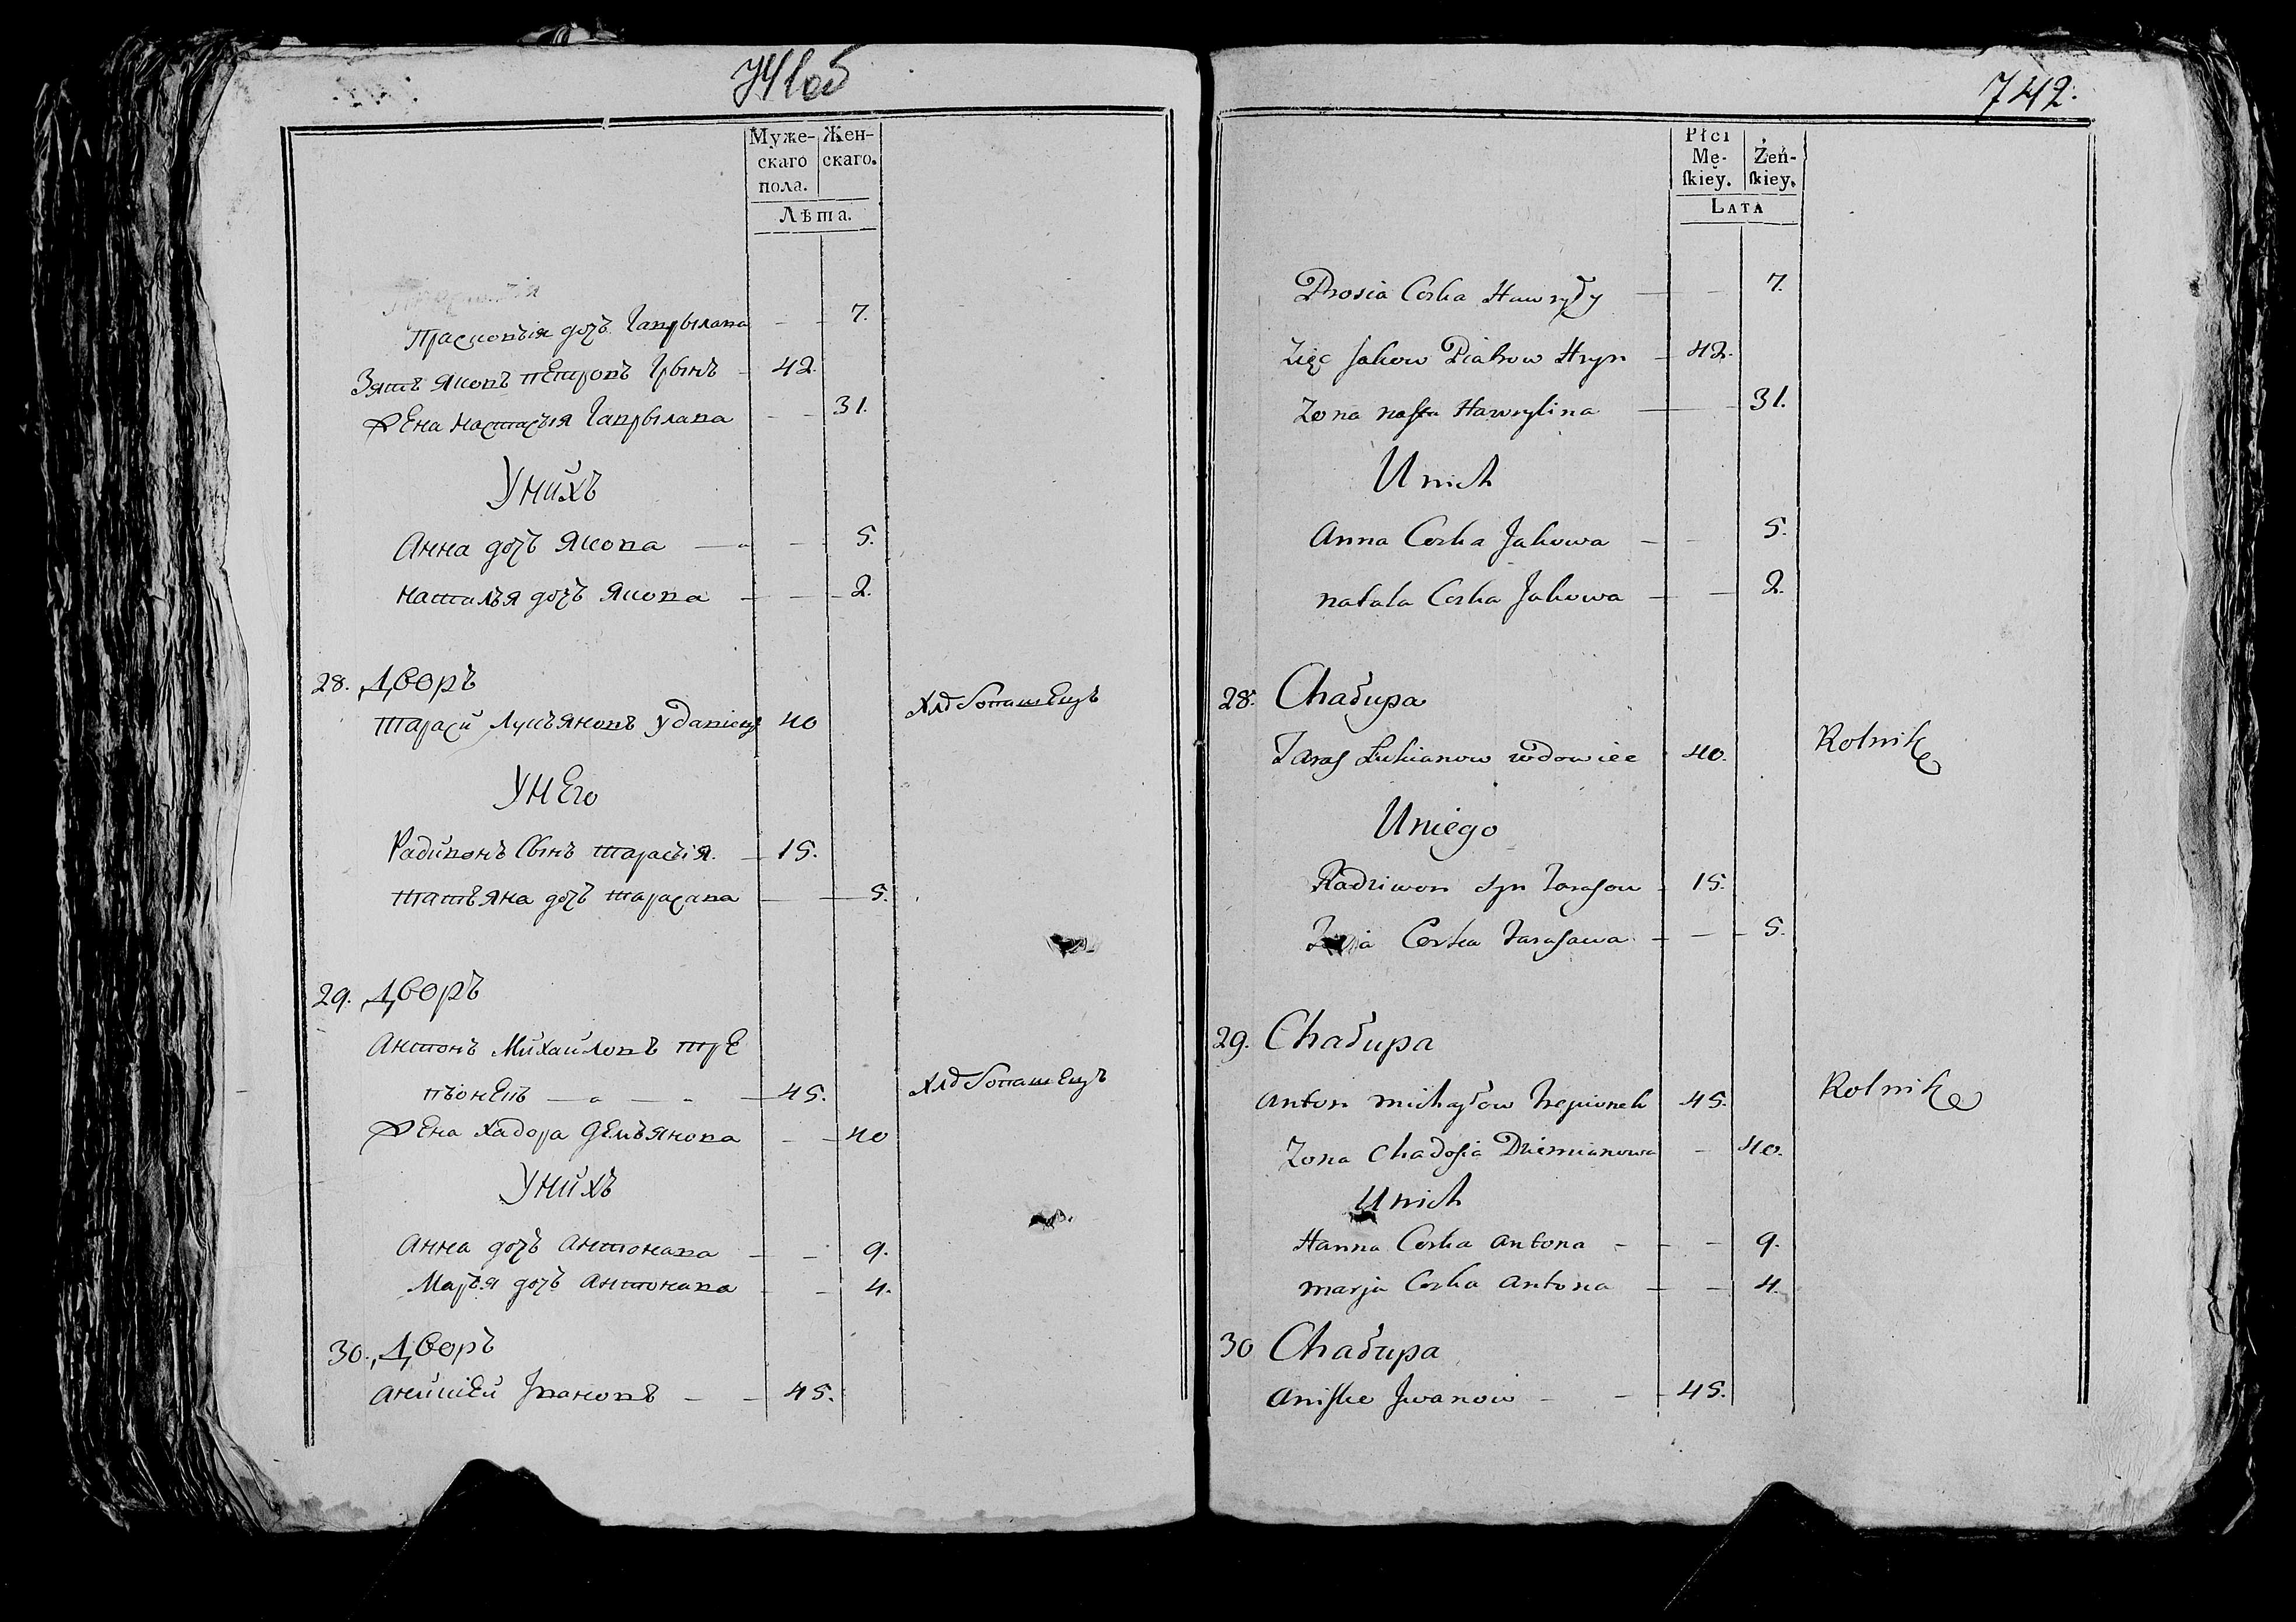 741об
Муже-
скаго
пола.
Жен-
скаго.
Лѣта.
Прасковъія дочъ Гаврылава — 7.
Зятъ Яковъ Петровъ Грынъ — 42.
Жена Настасъія Гаврылава — 31.
Унихъ
Анна дочъ Якова — 5.
Наталъя дочъ Якова — 2.
28. Дворъ
Тарасй Лукъяновъ удавіец 40 Хлебопашецъ
Унего
Радивонъ Сынъ Тарасія. — 15.
Татъяна дочъ Тарасава — 5.
29. Дворъ
Антонъ Михайловъ Тре
пъіонекъ — 45. Хлебопашецъ
Жена Хадора Демъянова — 40
Унихъ
Анна дочъ Антонава — 9.
Маръя дочъ Антонава — 4.
30. Дворъ
Анисей Івановъ — 45.
742.
Płci
Mę-
ſkiey.
Żeń-
ſkiey.
Lata
Prosia Corka Hawryły — 7.
Zięc Jakow Piatrow Hryn — 42.
Zona nasta Hawrylina — 31.
Unich
Anna Corka Jakowa — 5.
natala Corka Jakowa — 2.
28. Chałupa
Taras Łukianow wdowiec 40. Rolnik
Uniego
Radziwon syn Tarasow 15.
Corka Tarasawa — 5.
29. Chałupa
Anton michayłow Trepionek 45. Rolnik
Zona Chadosia Dziemianowa — 40.
Unich
Hanna Corka Antona — 9.
marja Corka Antona — 4.
30 Chałupa
Aniśke Jwanow — 45.